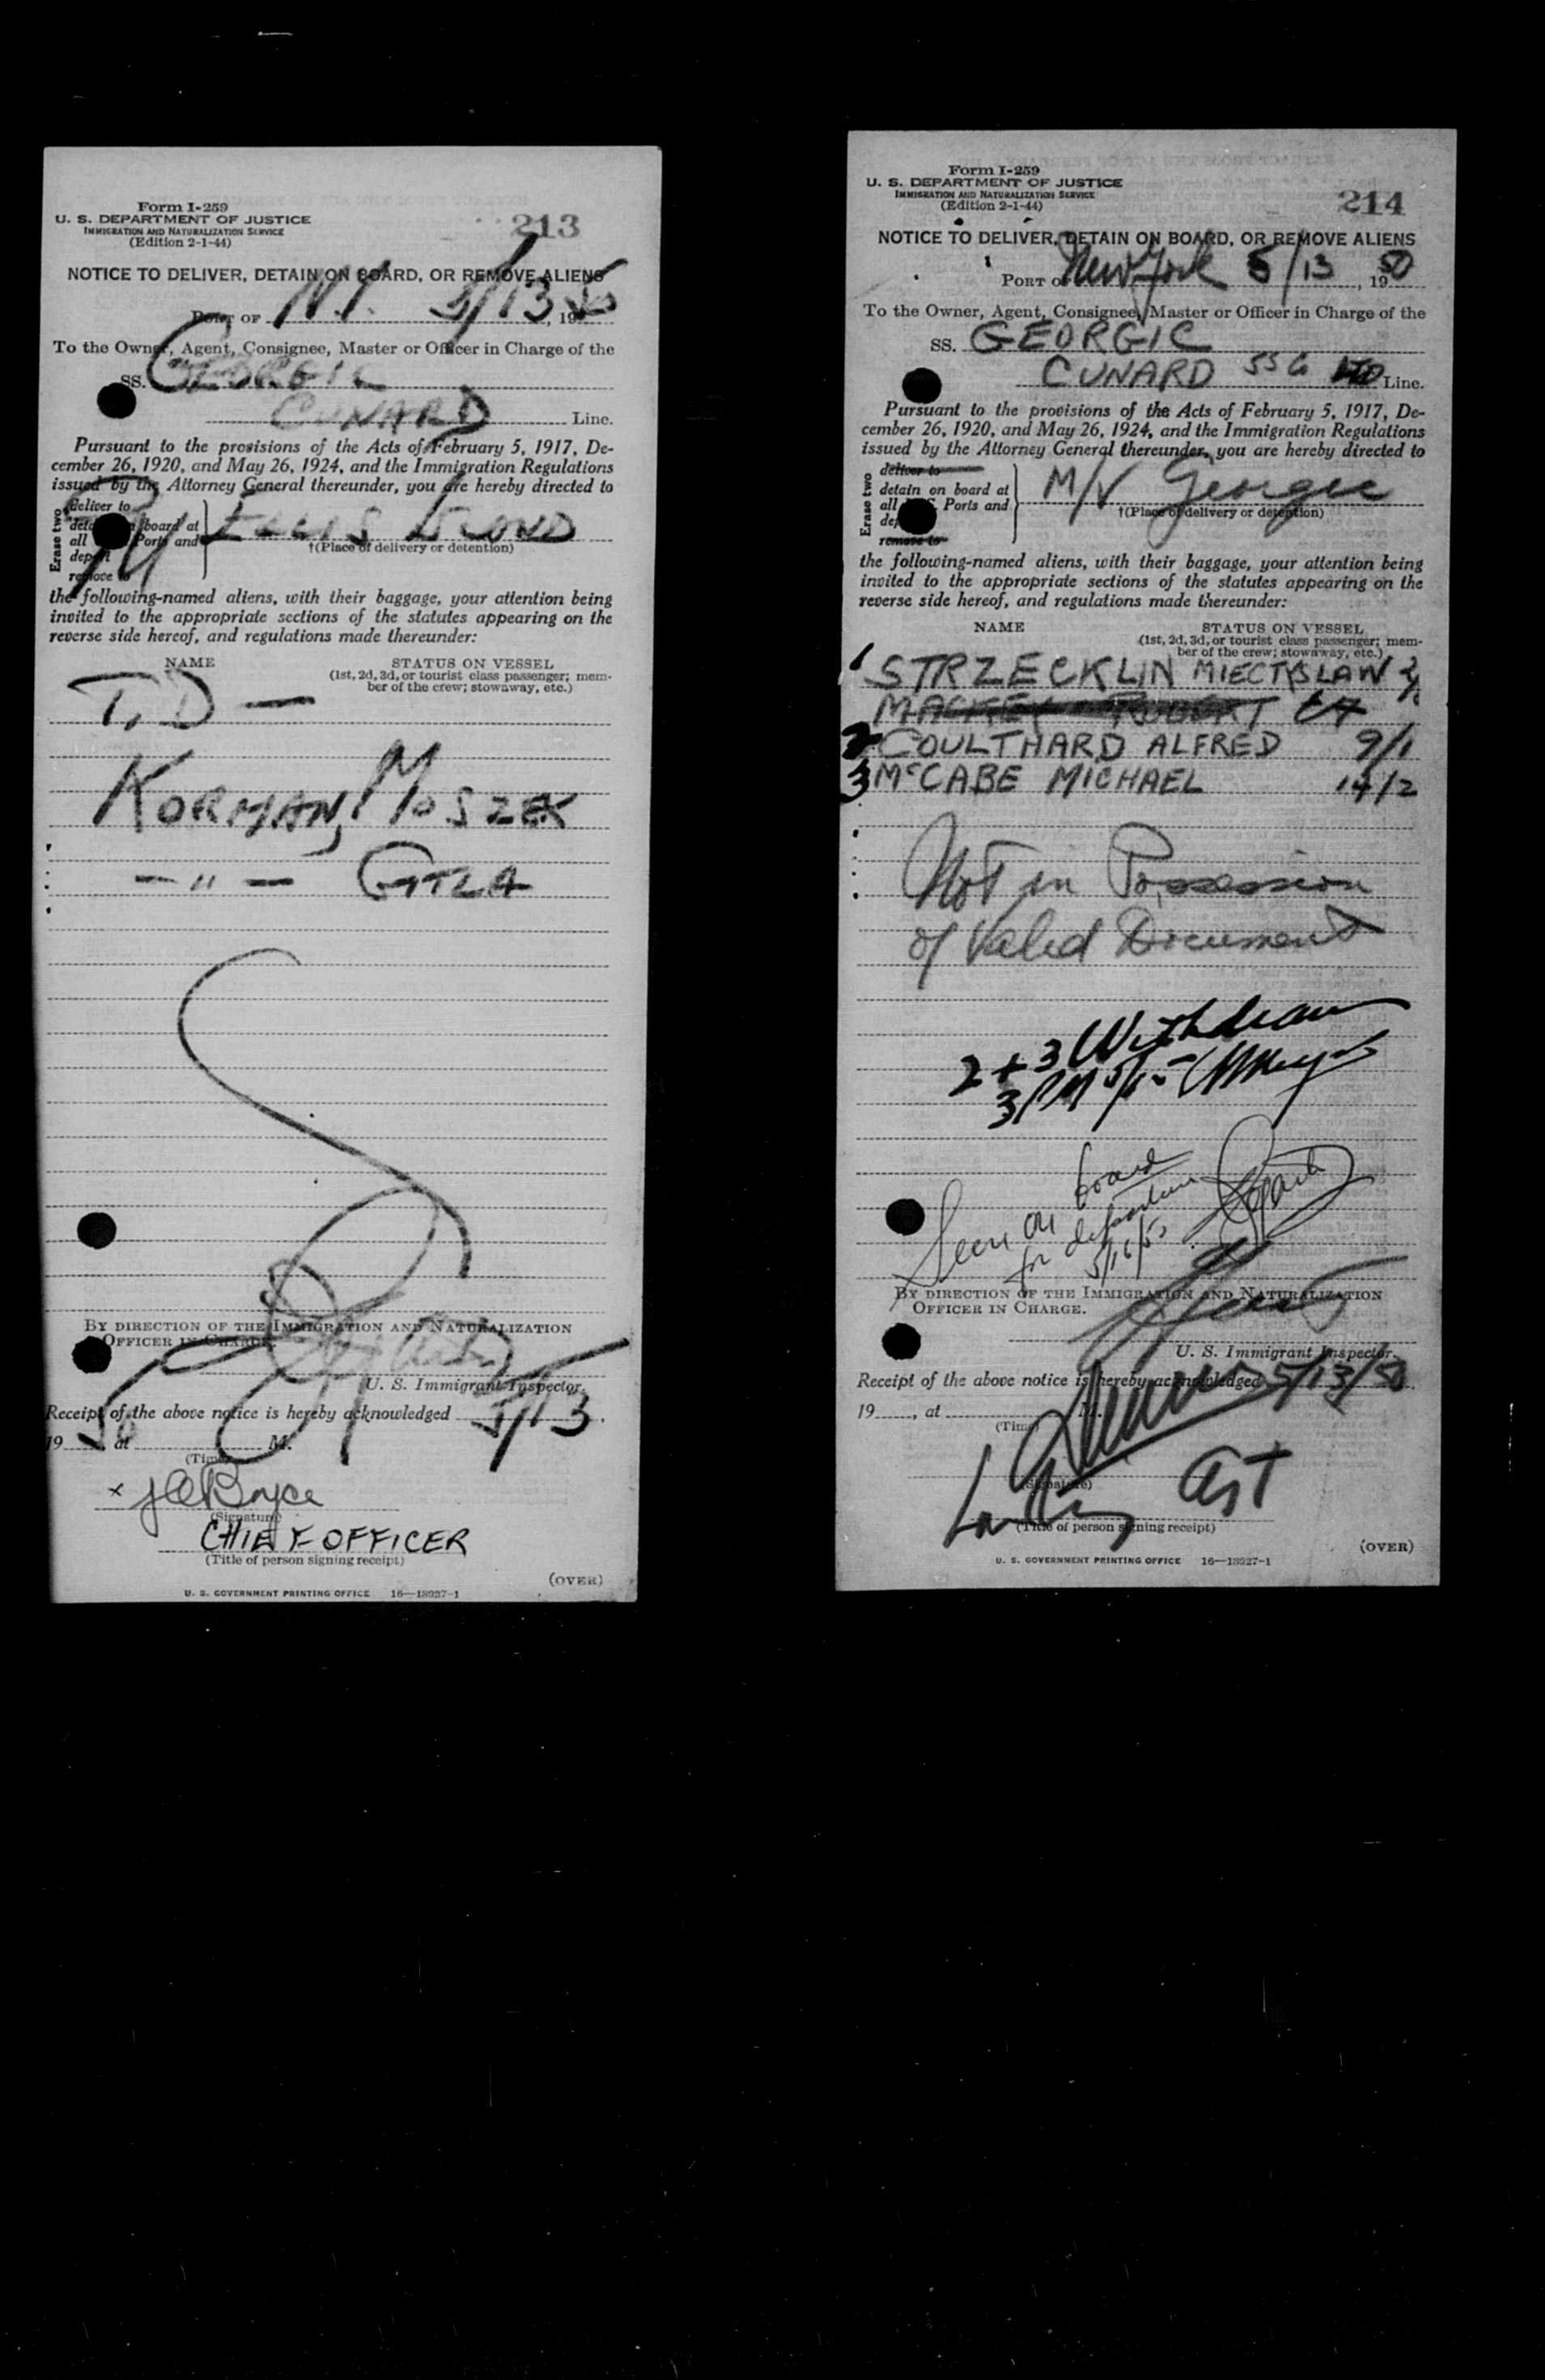 Form I-259
U. S. DEPARTMENT OF JUSTICE
IMMIGRATION AND NATURALIZATION SERVICE
(Edition 2-1-44)
213
NOTICE TO DELIVER, DETAIN ON BOARD, OR REMOVE ALIENS
PORT OF N.Y. 5/13, 1950
To the Owner, Agent, Consignee, Master or Officer in Charge of the
SS. GEORGIC
CUNARD Line.
Pursuant to the provisions of the Acts of February 5, 1917, De-
cember 26, 1920, and May 26, 1924, and the Immigration Regulations
issued by the Attorney General thereunder, you are hereby directed to
Erase two
deliver to
board at
all Ports and
remove to
ELLIS ISLAND
†(Place of delivery or detention)
the following-named aliens, with their baggage, your attention being
invited to the appropriate sections of the statutes appearing on the
reverse side hereof, and regulations made thereunder:
NAME STATUS ON VESSEL
(1st, 2d, 3d, or tourist class passenger; mem-
ber of the crew; stowaway, etc.)
T, D —
KORMAN, MOSZEK
— " — GITLA
BY DIRECTION OF THE IMMIGRATION AND NATURALIZATION
OFFICER IN CHARGE.
U. S. Immigrant Inspector.
Receipt of the above notice is hereby acknowledged 5/13,
19 50 at M.
(Time)
x Boyce
(Signature)
CHIEF OFFICER
(Title of person signing receipt)
(OVER)
U. S. GOVERNMENT PRINTING OFFICE 16—18927-1
Form I-259
U. S. DEPARTMENT OF JUSTICE
IMMIGRATION AND NATURALIZATION SERVICE
(Edition 2-1-44)
214
NOTICE TO DELIVER, DETAIN ON BOARD, OR REMOVE ALIENS
PORT OF New York 5/13, 1950
To the Owner, Agent, Consignee, Master or Officer in Charge of the
SS. GEORGIC
CUNARD SS Co LTD Line.
Pursuant to the provisions of the Acts of February 5, 1917, De-
cember 26, 1920, and May 26, 1924, and the Immigration Regulations
issued by the Attorney General thereunder, you are hereby directed to
Erase two
deliver to
detain on board at
all Ports and
remove to
M/V Georgic
†(Place of delivery or detention)
the following-named aliens, with their baggage, your attention being
invited to the appropriate sections of the statutes appearing on the
reverse side hereof, and regulations made thereunder:
NAME STATUS ON VESSEL
(1st, 2d, 3d, or tourist class passenger; mem-
ber of the crew; stowaway, etc.)
1 STRZECKLIN MIECTYSLAW
MACKEY ROBERT
2 COULTHARD ALFRED 9/1
3 McCABE MICHAEL 14/2
Not in Possession
of Valid Document
2 + 3 Withdrawn
3 PM 5/15
Seen on board
for departure
5/16/50
BY DIRECTION OF THE IMMIGRATION AND NATURALIZATION
OFFICER IN CHARGE.
U. S. Immigrant Inspector.
Receipt of the above notice is hereby acknowledged 5/13/50
19 , at M.
(Time)
(Signature)
Ast
(Title of person signing receipt)
(OVER)
U. S. GOVERNMENT PRINTING OFFICE 16—18927-1